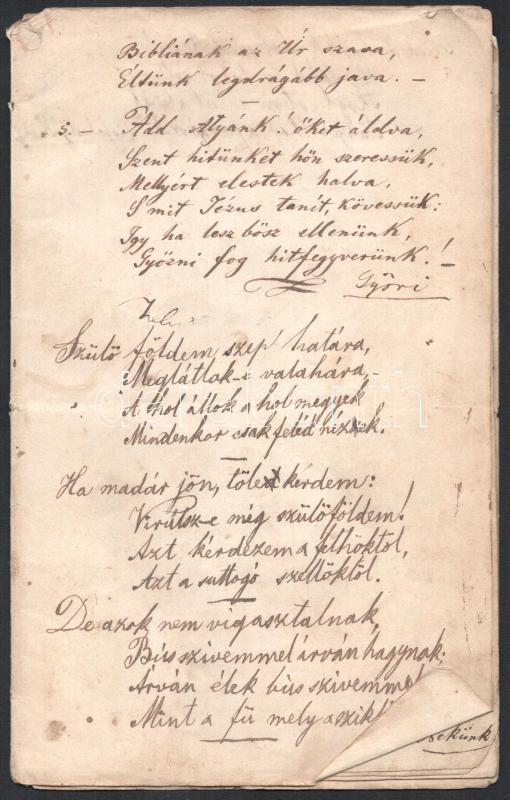 Bibliának az Úr szava,
Éltünk legdrágább java. –
5. – Add Atyánk! őket áldva,
Szent hitünket hön szeressük,
Mellyért elestek halva,
S mit Jézus tanít, kövessük:
Igy ha lesz bősz ellenünk,
Győzni fog hitfegyverünk! –
Győri
Szülő földem szep határa,
Meglátlak-e valahára,
A hol állok a hol megyek
Mindenkor csak feléd nézek.
Ha madár jön, töle kérdem:
Virulsz-e még szülőföldem!
Azt kérdezem a felhöktöl,
Azt a suttogó szellöktöl.
De azok nem vigasztalnak,
Bús szivemmel árván hagynak;
Árván élek bús szivemmel
Mint a fü mely a